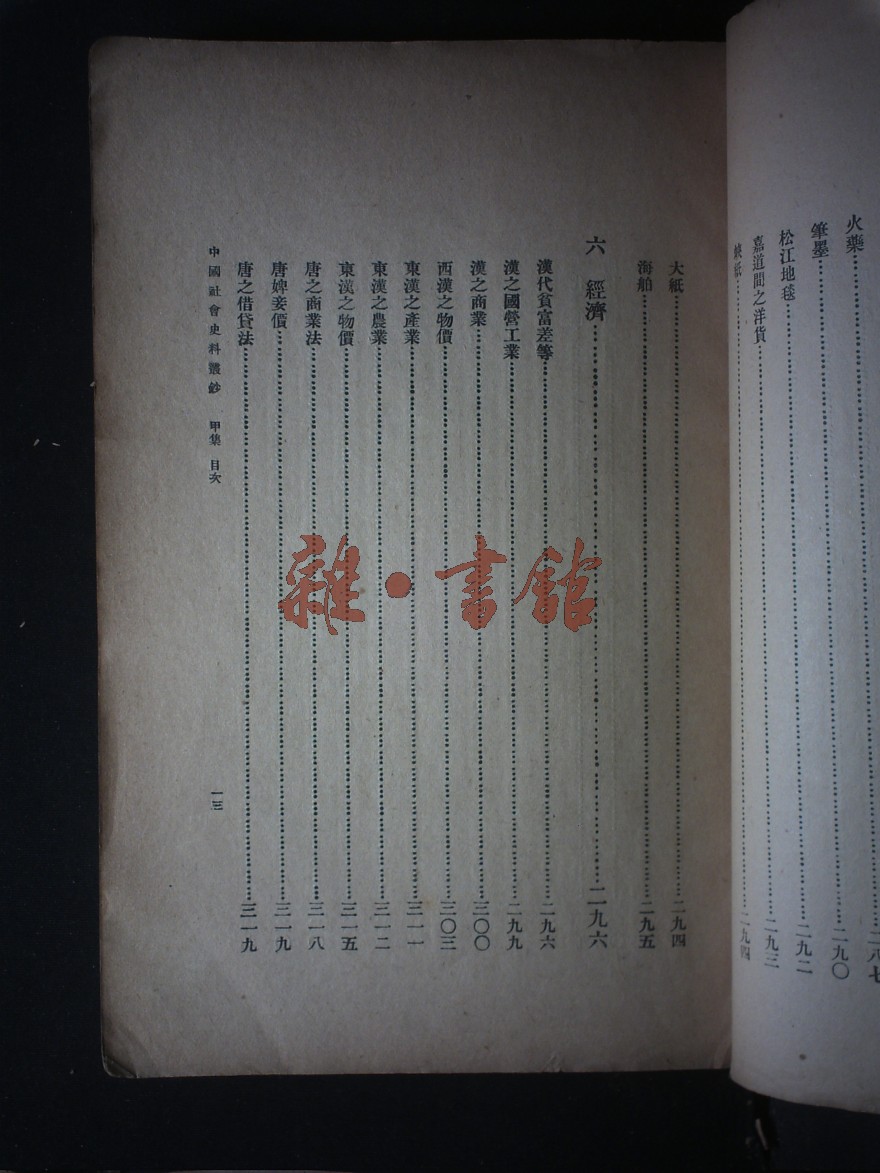 火藥……二八七
筆墨……二九〇
松江地毯……二九二
嘉道間之洋貨……二九三
紙……二九四
大紙……二九四
海舶……二九五
六 經濟……二九六
漢代貧富差等……二九六
漢之國營工業……二九九
漢之商業……三〇〇
西漢之物價……三〇三
東漢之產業……三一一
東漢之農業……三一二
東漢之物價……三一五
唐之商業法……三一八
唐婢妾價……三一九
唐之借貸法……三一九
中國社會史料叢鈔 甲集 目次 一三
雜·書館